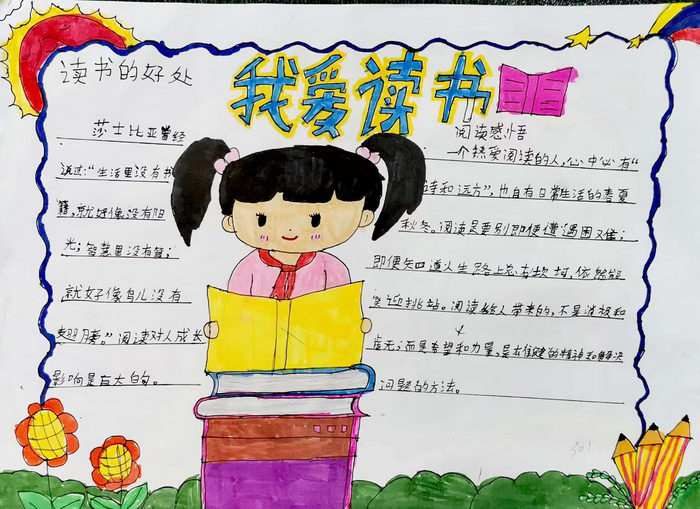 我爱读书
读书的好处
莎士比亚曾经
说过:“生活里没有书
籍,就好像没有阳
光;智慧里没有
就好像鸟儿没有
翅膀。”阅读对人成长
影响是巨大的。
阅读感悟
一个热爱阅读的人,心中必有“
诗和远方”,也自有日常生活的春夏
秋冬。阅读是要别即便遭遇困难;
即便知道人生路上总有坎坷,依然能
迎挑战。阅读给人带来的,不是消极和
虚无;而是希望和力量,是出健的精神和解决
问题的方法。